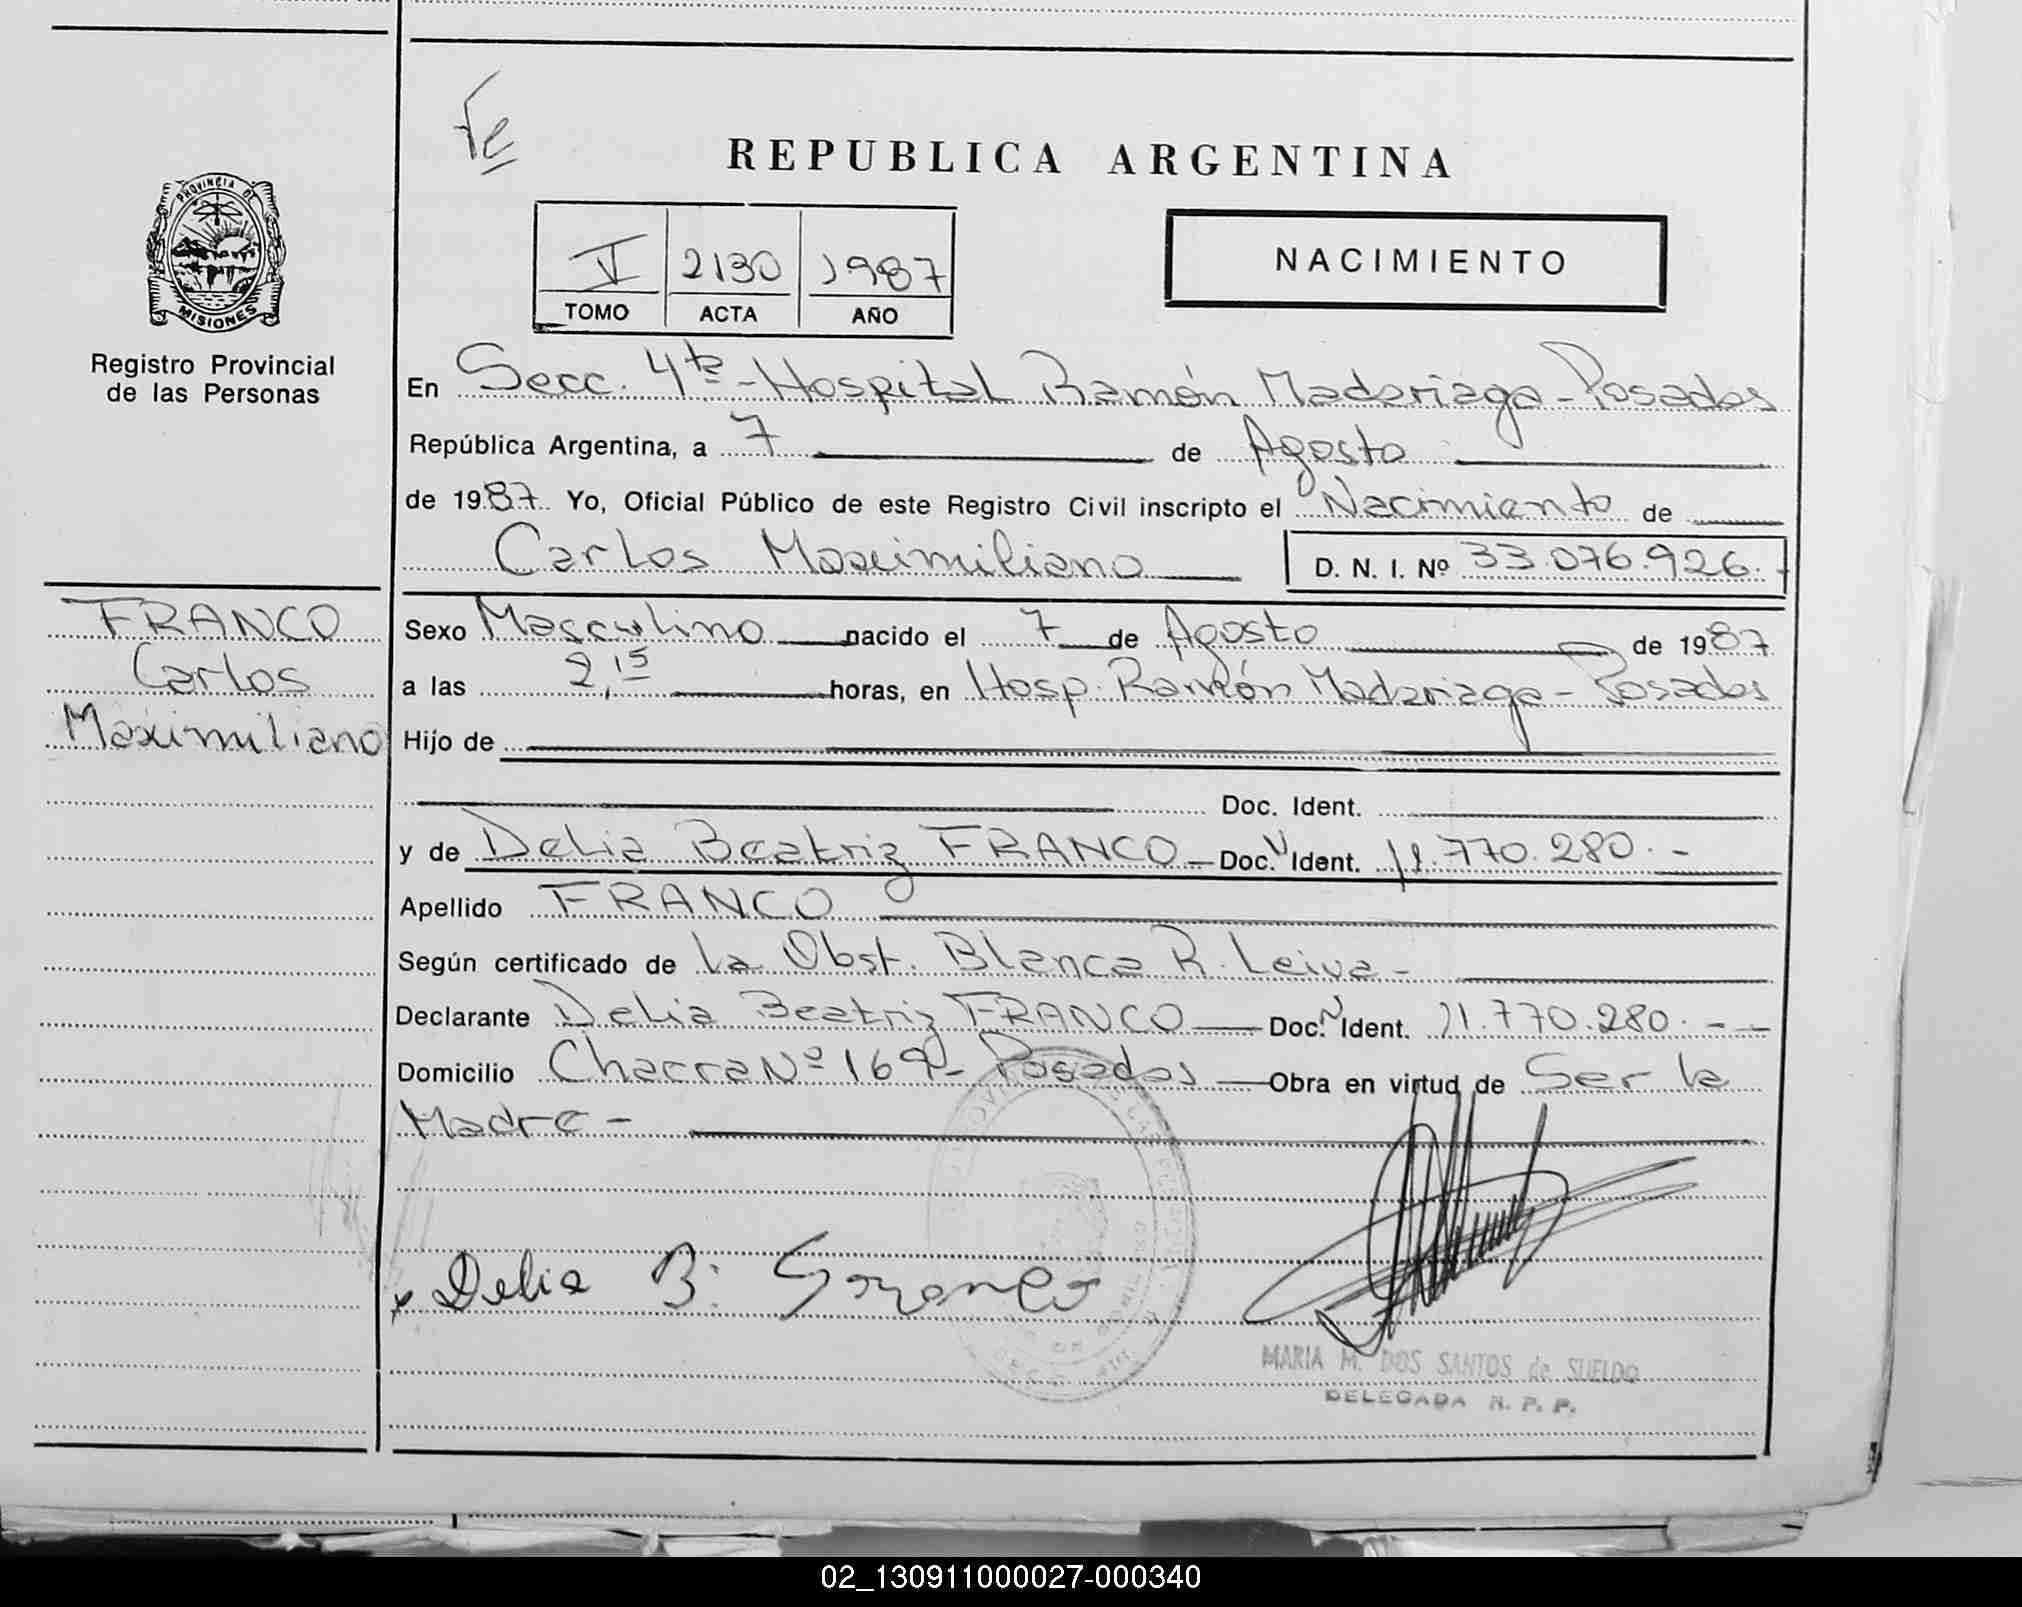 Fe
REPUBLICA ARGENTINA
V 2130 1987
TOMO ACTA AÑO
NACIMIENTO
PROVINCIA DE
MISIONES
Registro Provincial
de las Personas
En Secc. 4ta - Hospital Ramón Madariaga - Posadas
República Argentina, a 7 de Agosto
de 1987. Yo, Oficial Público de este Registro Civil inscripto el Nacimiento de
Carlos Maximiliano D. N. I. Nº 33.076.926.-
FRANCO
Carlos
Maximiliano
Sexo Masculino nacido el 7 de Agosto de 1987
a las 2,15 horas, en Hosp. Ramón Madariaga - Posadas
Hijo de
Doc. Ident.
y de Delia Beatriz FRANCO - Doc. Ident. 11.770.280.-
Apellido FRANCO
Según certificado de la Obst. Blanca R. Leiva -
Declarante Delia Beatriz FRANCO Doc. Ident. 11.770.280.--
Domicilio Chacra Nº 169 - Posadas Obra en virtud de Ser la
Madre -
x Delia B.
MARIA M. DOS SANTOS de SUELDO
DELEGADA R. P. P.
02_130911000027-000340